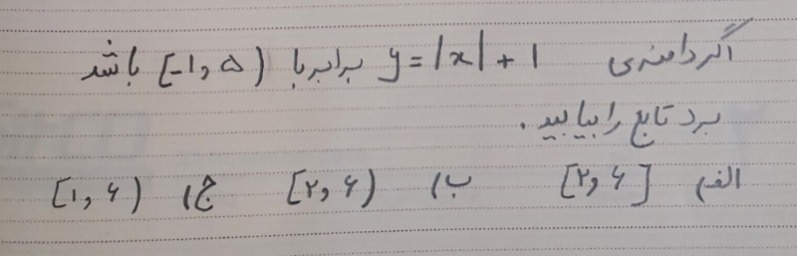 اگر دامنه‌ی y = |x| + 1 برابر با [-1, 5) باشد
برد تابع را بیابید.
الف) [۲, ۶] ب) [۲, ۶) ج) [۱, ۶)